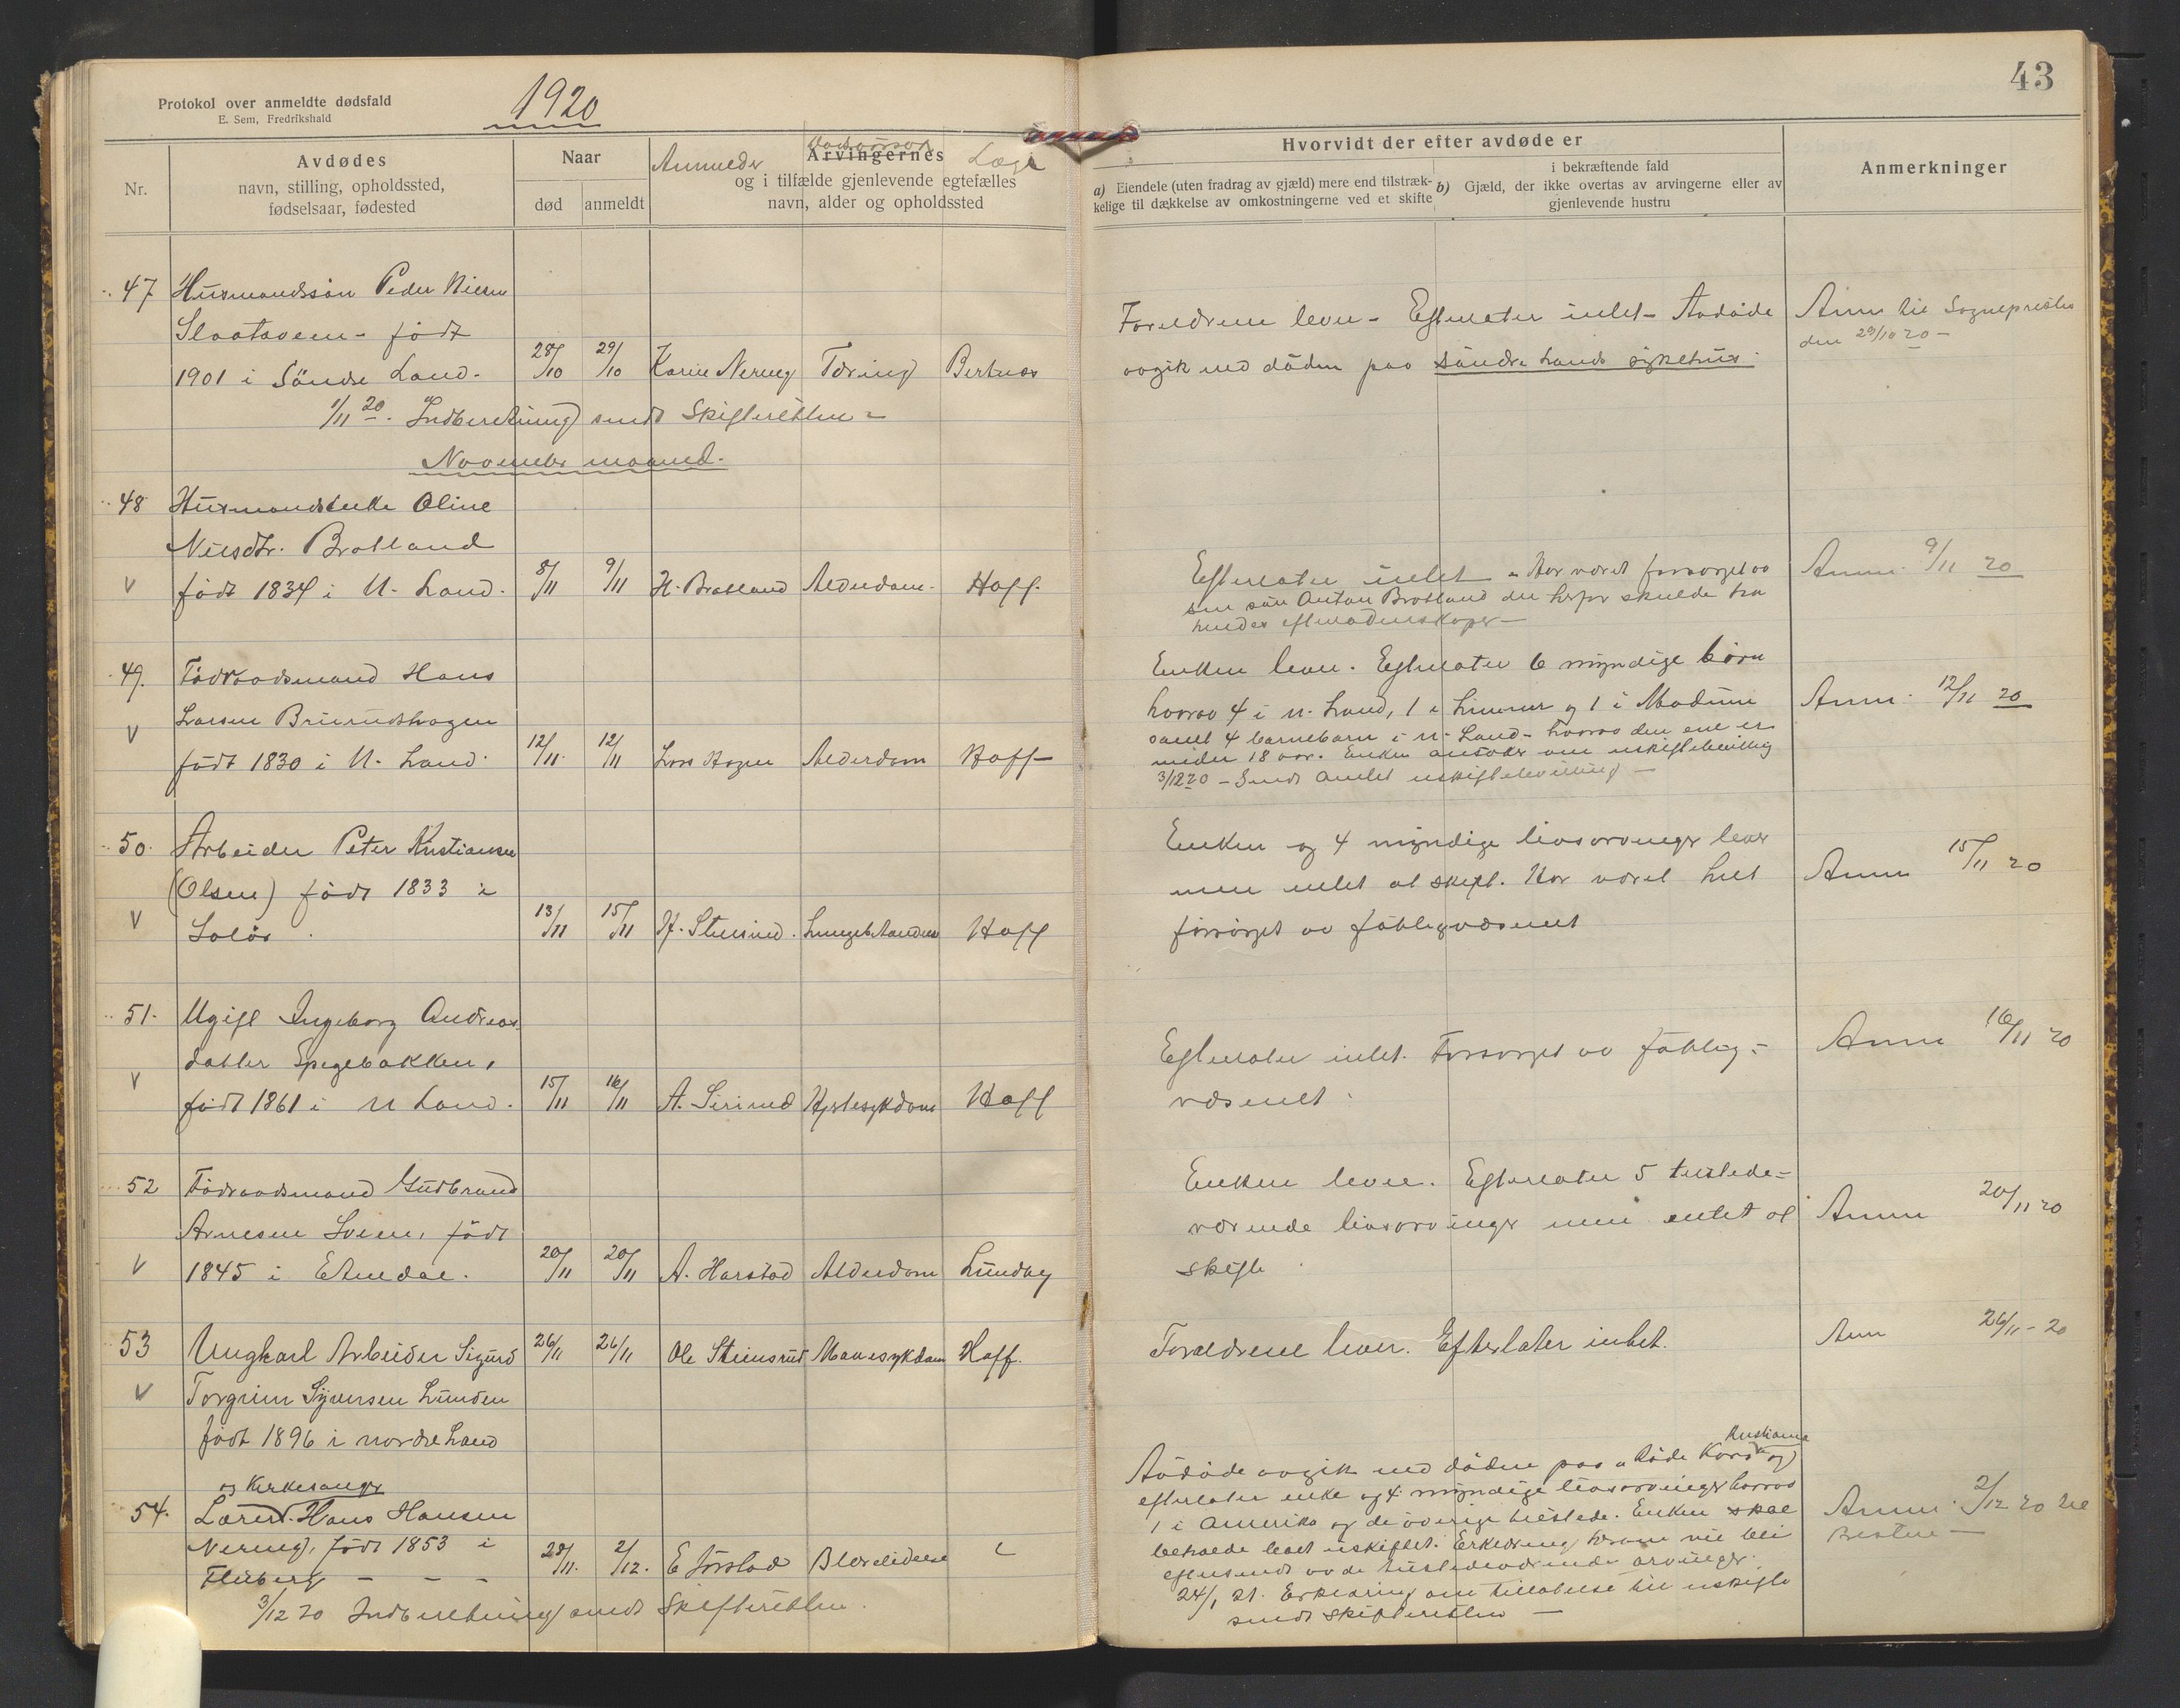 Protokol over anmeldte dødsfald
E. Sem, Fredrikshald
1920
43
Nr.
Avdødes
navn, stilling, opholdssted,
fødselsaar, fødested
Naar
død anmeldt
Anmelder Dødsårsak Læge
Arvingernes
og i tilfælde gjenlevende egtefælles
navn, alder og opholdssted
Hvorvidt der efter avdøde er
a) Eiendele (uten fradrag av gjæld) mere end tilstræk-
kelige til dækkelse av omkostningerne ved et skifte
b) i bekræftende fald
Gjæld, der ikke overtas av arvingerne eller av
gjenlevende hustru
Anmerkninger
47 Husmandssøn Peder
født
1901 i Søndre Land. 28/10 29/10 Karin Nereng Tæring
Forældrene lever - Efterlater intet - Avdøde
avgik ved døden paa Søndre Lands sykehus.
Anm til Sogneprest
den 29/10 20 -
1/11 20. Indberetning sendt Skifteretten -
November maaned.
48 Husmandsenke Oline
Nilsdtr. Bratland
V født 1834 i N. Land. 8/11 9/11 H. Bratland Alderdom. Hoff.
Efterlater intet - Har været forsørget av
sin søn Anton Bratland der herfor skulde ha
hendes efterladenskaper -
Anm. 9/11 20
49. Føderaadsmand Hans
V Larsen
født 1830 i N. Land. 12/11. 12/11 Lars Hagen Alderdom Hoff
Enken lever. Efterlater 6 myndige børn
hvorav 4 i N. Land, 1 i og 1 i Modum
samt 4 barnebarn i N. Land - hvorav den ene er
under 18 aar. Enken ansøker om uskiftebevilling
3/12 20 - Sendt Amtet uskiftebevilling -
Anm. 12/11 20
50. Arbeider Peter Kristiansen
(Olsen) født 1833 i
V Solør. 13/11 15/11 H. Stensrud. Lungebetændelse Hoff
Enken og 4 myndige livsarvinger lever
men intet at skifte. Har været helt
forsørget av fattigvæsenet
Anm 15/11 20
51. Ugift Ingeborg Andreas
datter Spegebakken,
V født 1861 i N Land. 15/11 16/11 A. Sirirud Hjertesykdom Hoff
Efterlater intet. Forsørget av fattig-
væsenet.
Anm 16/11 20
52 Føderaadsmand Gudbrand
Arnesen Sveen, født
V 1845 i Etnedal. 20/11 20/11 A. Harstad Alderdom Lundby
Enken lever. Efterlater 5 tilstede-
værende livsarvinger men intet at
skifte
Anm 20/11 20
53 Ungkarl Arbeider Sigurd 26/11 26/11 Ole Steinsrud Mavesykdom Hoff.
V Torgrim Syversen Lunden
født 1896 i nordre Land
Forældrene lever. Efterlater intet.
Anm 26/11 - 20
og Kirkesanger
54. Lærer Hans Hansen
Nereng, født 1853 i
Fluberg - - - 28/11. 2/12. E Jørstad Blærelidelse
Avdøde avgik ved døden paa Røde Kors Kristiania og
efterlater enke og 4 myndige livsarvinger hvorav
1 i Amerika og de øvrige tilstede. Enken skal
beholde boet uskiftet. Erklæring herom vil bli
eftersendt av de tilstedeværende arvinger.
24/1 21. Erklæring om tillatelse til uskifte
sendt skifteretten -
Anm. 2/12 20 til
Presten -
3/12 20 Indberetning sendt Skifteretten.